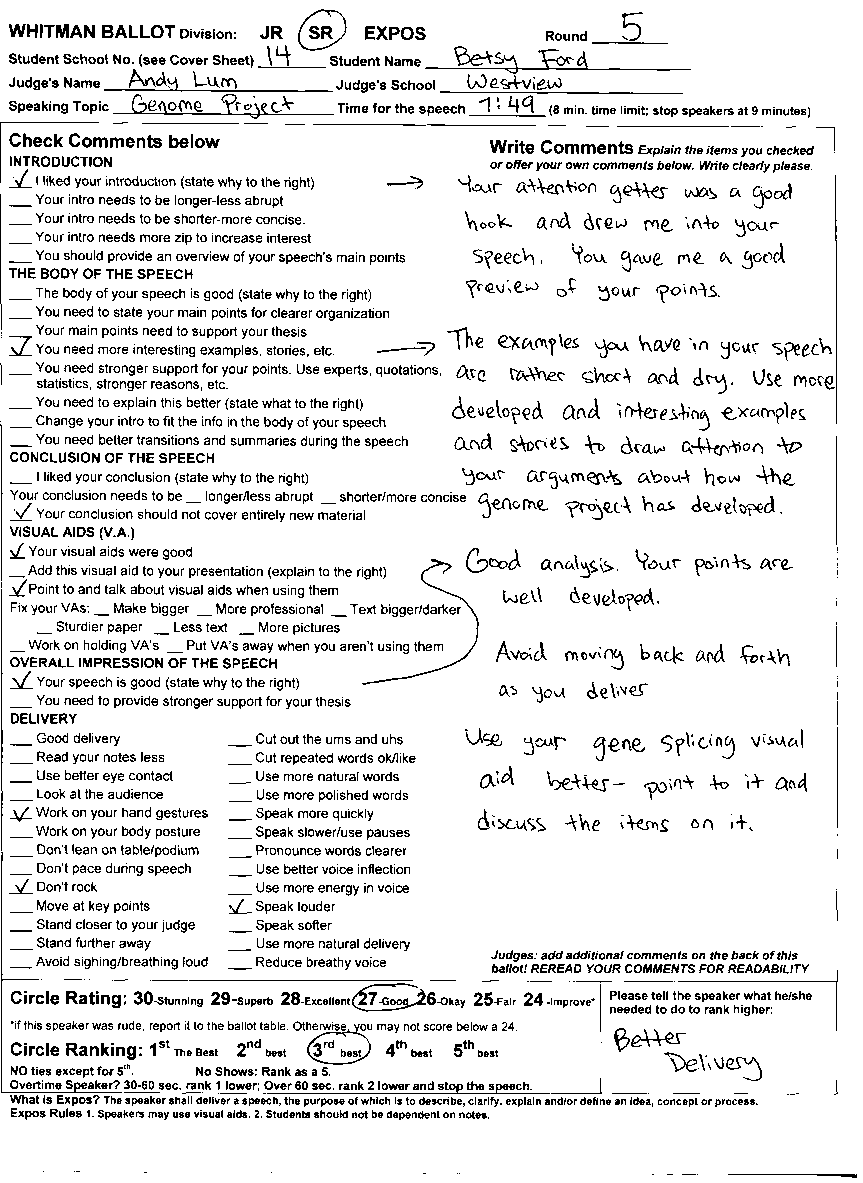 WHITMAN BALLOT Division: JR SR EXPOS Round 5
Student School No. (see Cover Sheet) 14 Student Name Betsy Ford
Judge's Name Andy Lum Judge's School Westview
Speaking Topic Genome Project Time for the speech 7:49 (8 min. time limit; stop speakers at 9 minutes)
Check Comments below
INTRODUCTION
✓ I liked your introduction (state why to the right) →
__ Your intro needs to be longer-less abrupt
__ Your intro needs to be shorter-more concise.
__ Your intro needs more zip to increase interest
__ You should provide an overview of your speech's main points
THE BODY OF THE SPEECH
__ The body of your speech is good (state why to the right)
__ You need to state your main points for clearer organization
__ Your main points need to support your thesis
✓ You need more interesting examples, stories, etc. →
__ You need stronger support for your points. Use experts, quotations,
statistics, stronger reasons, etc.
__ You need to explain this better (state what to the right)
__ Change your intro to fit the info in the body of your speech
__ You need better transitions and summaries during the speech
CONCLUSION OF THE SPEECH
__ I liked your conclusion (state why to the right)
Your conclusion needs to be __ longer/less abrupt __ shorter/more concise
✓ Your conclusion should not cover entirely new material
VISUAL AIDS (V.A.)
✓ Your visual aids were good
__ Add this visual aid to your presentation (explain to the right)
✓ Point to and talk about visual aids when using them
Fix your VAs: __ Make bigger __ More professional __ Text bigger/darker
__ Sturdier paper __ Less text __ More pictures
__ Work on holding VA's __ Put VA's away when you aren't using them
OVERALL IMPRESSION OF THE SPEECH
✓ Your speech is good (state why to the right)
__ You need to provide stronger support for your thesis
DELIVERY
__ Good delivery
__ Read your notes less
__ Use better eye contact
__ Look at the audience
✓ Work on your hand gestures
__ Work on your body posture
__ Don't lean on table/podium
__ Don't pace during speech
✓ Don't rock
__ Move at key points
__ Stand closer to your judge
__ Stand further away
__ Avoid sighing/breathing loud
__ Cut out the ums and uhs
__ Cut repeated words ok/like
__ Use more natural words
__ Use more polished words
__ Speak more quickly
__ Speak slower/use pauses
__ Pronounce words clearer
__ Use better voice inflection
__ Use more energy in voice
✓ Speak louder
__ Speak softer
__ Use more natural delivery
__ Reduce breathy voice
Write Comments Explain the items you checked
or offer your own comments below. Write clearly please.
Your attention getter was a good
hook and drew me into your
speech. You gave me a good
preview of your points.
The examples you have in your speech
are rather short and dry. Use more
developed and interesting examples
and stories to draw attention to
your arguments about how the
genome project has developed.
Good analysis. Your points are
well developed.
Avoid moving back and forth
as you deliver
Use your gene splicing visual
aid better- point to it and
discuss the items on it.
Judges: add additional comments on the back of this
ballot! REREAD YOUR COMMENTS FOR READABILITY
Circle Rating: 30-Stunning 29-Superb 28-Excellent 27-Good 26-Okay 25-Fair 24-Improve*
*if this speaker was rude, report it to the ballot table. Otherwise, you may not score below a 24.
Circle Ranking: 1st The Best 2nd best 3rd best 4th best 5th best
NO ties except for 5th. No Shows: Rank as a 5.
Overtime Speaker? 30-60 sec. rank 1 lower; Over 60 sec. rank 2 lower and stop the speech.
Please tell the speaker what he/she
needed to do to rank higher:
Better
Delivery
What is Expos? The speaker shall deliver a speech, the purpose of which is to describe, clarify, explain and/or define an idea, concept or process.
Expos Rules 1. Speakers may use visual aids. 2. Students should not be dependent on notes.